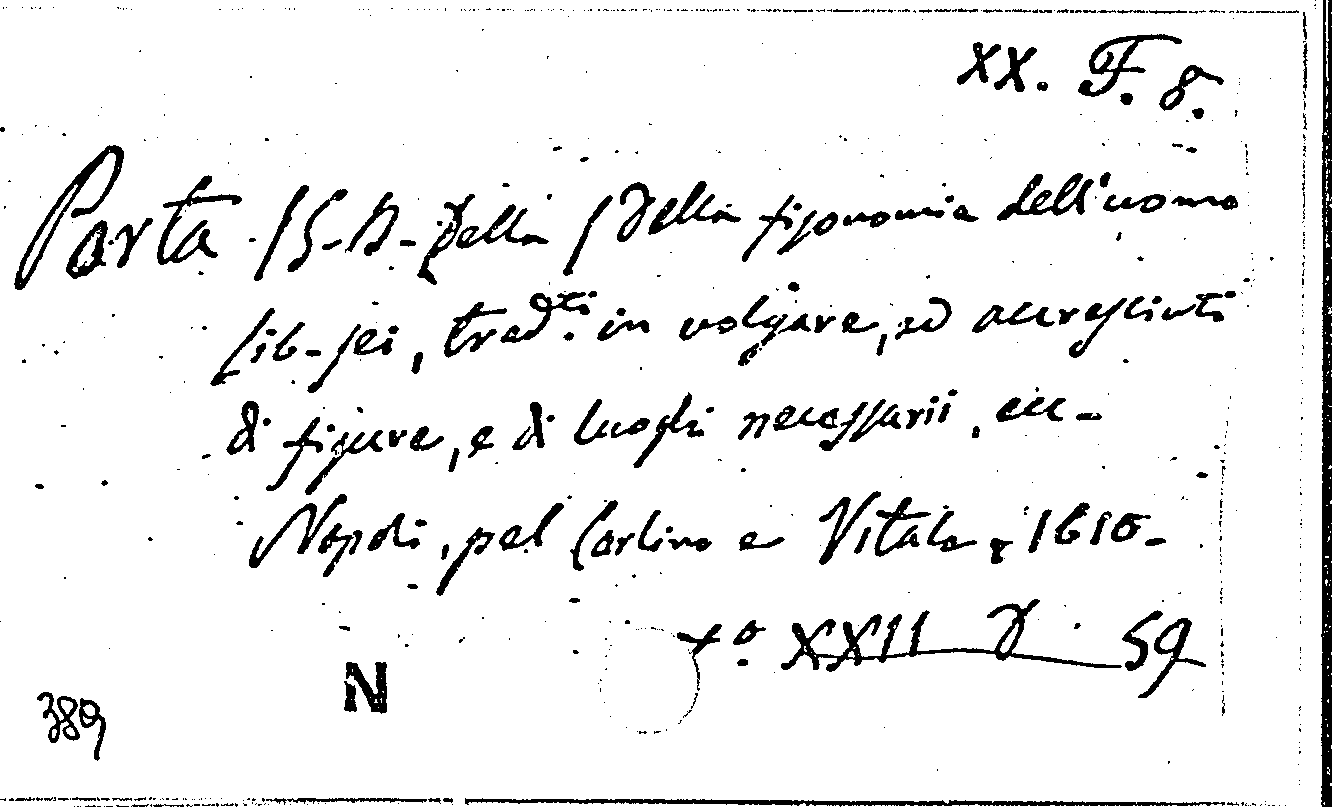 XX. F. 8.
Porta (G. B. Della) Della fisonomia dell'uomo
Lib. sei, trad.ti in volgare, ed accresciuti
di figure, e di luoghi necessarii, ecc.
Napoli, pel Carlino e Vitale, 1610.
4.º XXII D 59
N
389